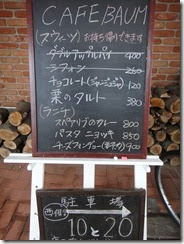 CAFE BAUM
(スウィーツ) お持ち帰りできます
ダブルアップルパイ 400
シフォン 260
チョコレート(ジャンジュジャ) 120
栗のタルト 380
(ランチ)
スペアリブのカレー 800
パスタ ニョッキ 850
チーズフォンデュー 900
駐車場
西側
10と20